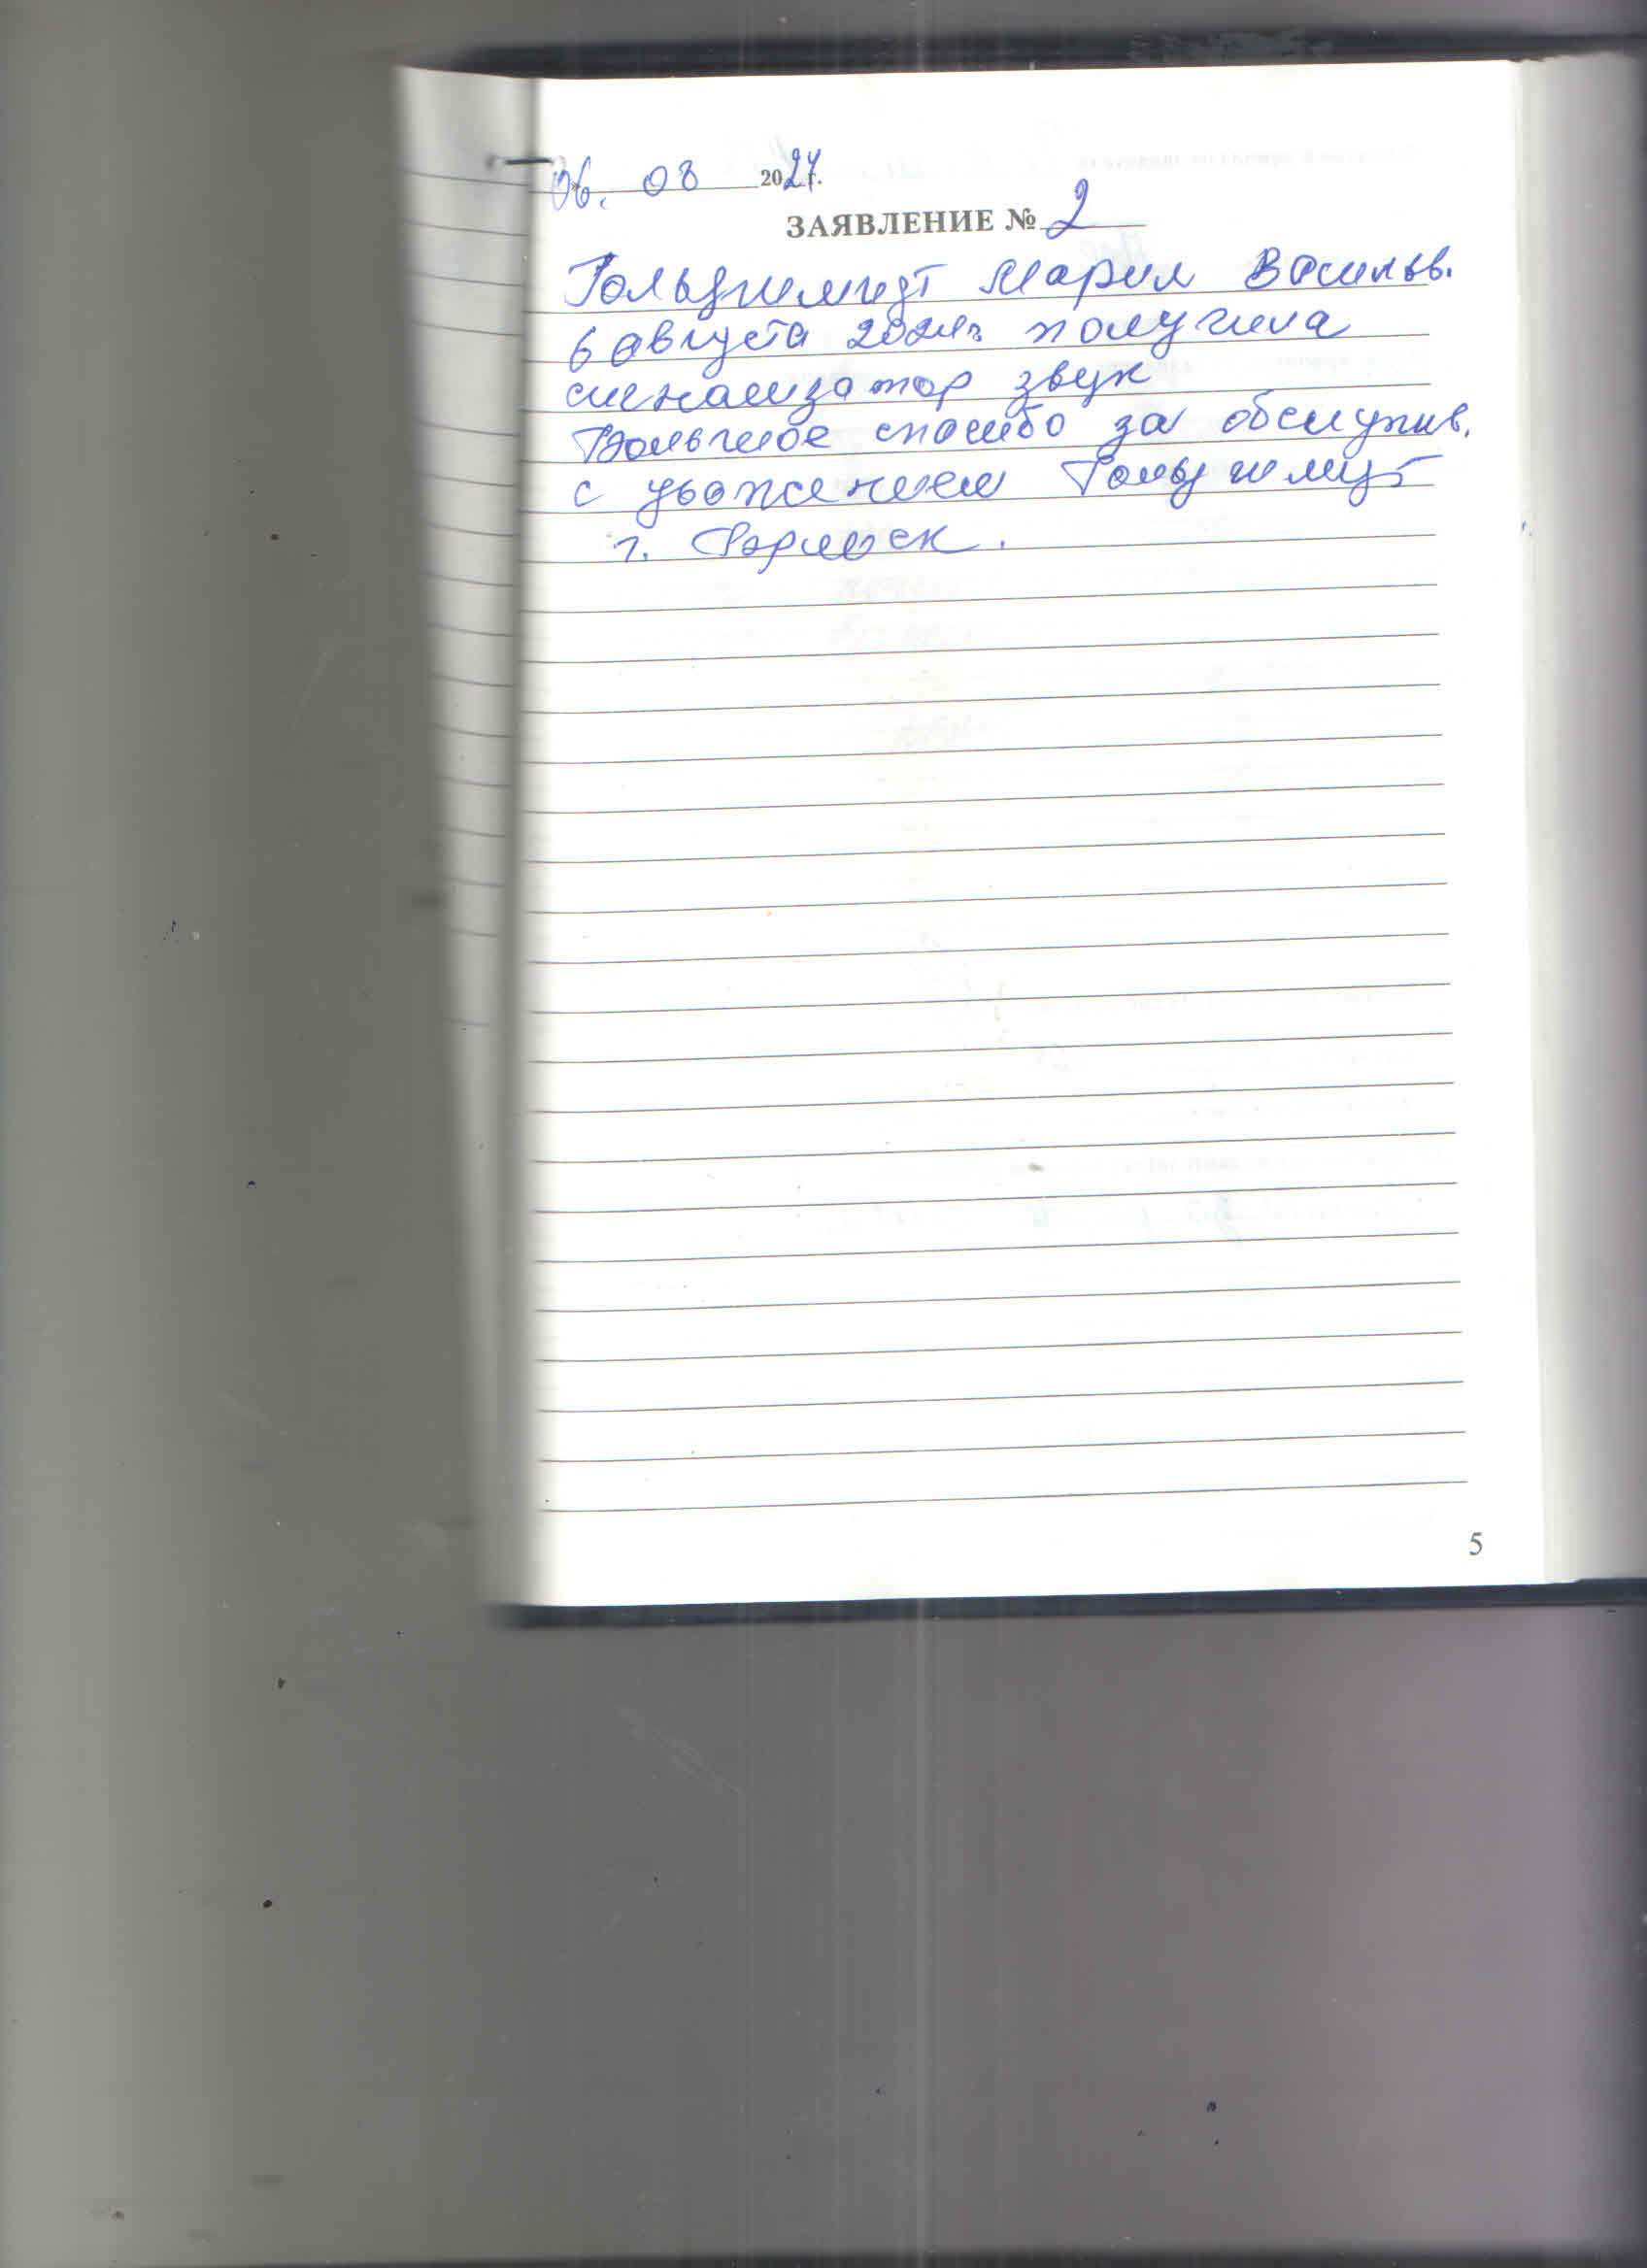 06. 08 2024г.
ЗАЯВЛЕНИЕ № 2
Гольдшмидт Мария Васильев.
6 августа 2024г. получила
сигнализатор звук
Большое спасибо за обслужив.
с уважением Гольдшмидт
г.
5